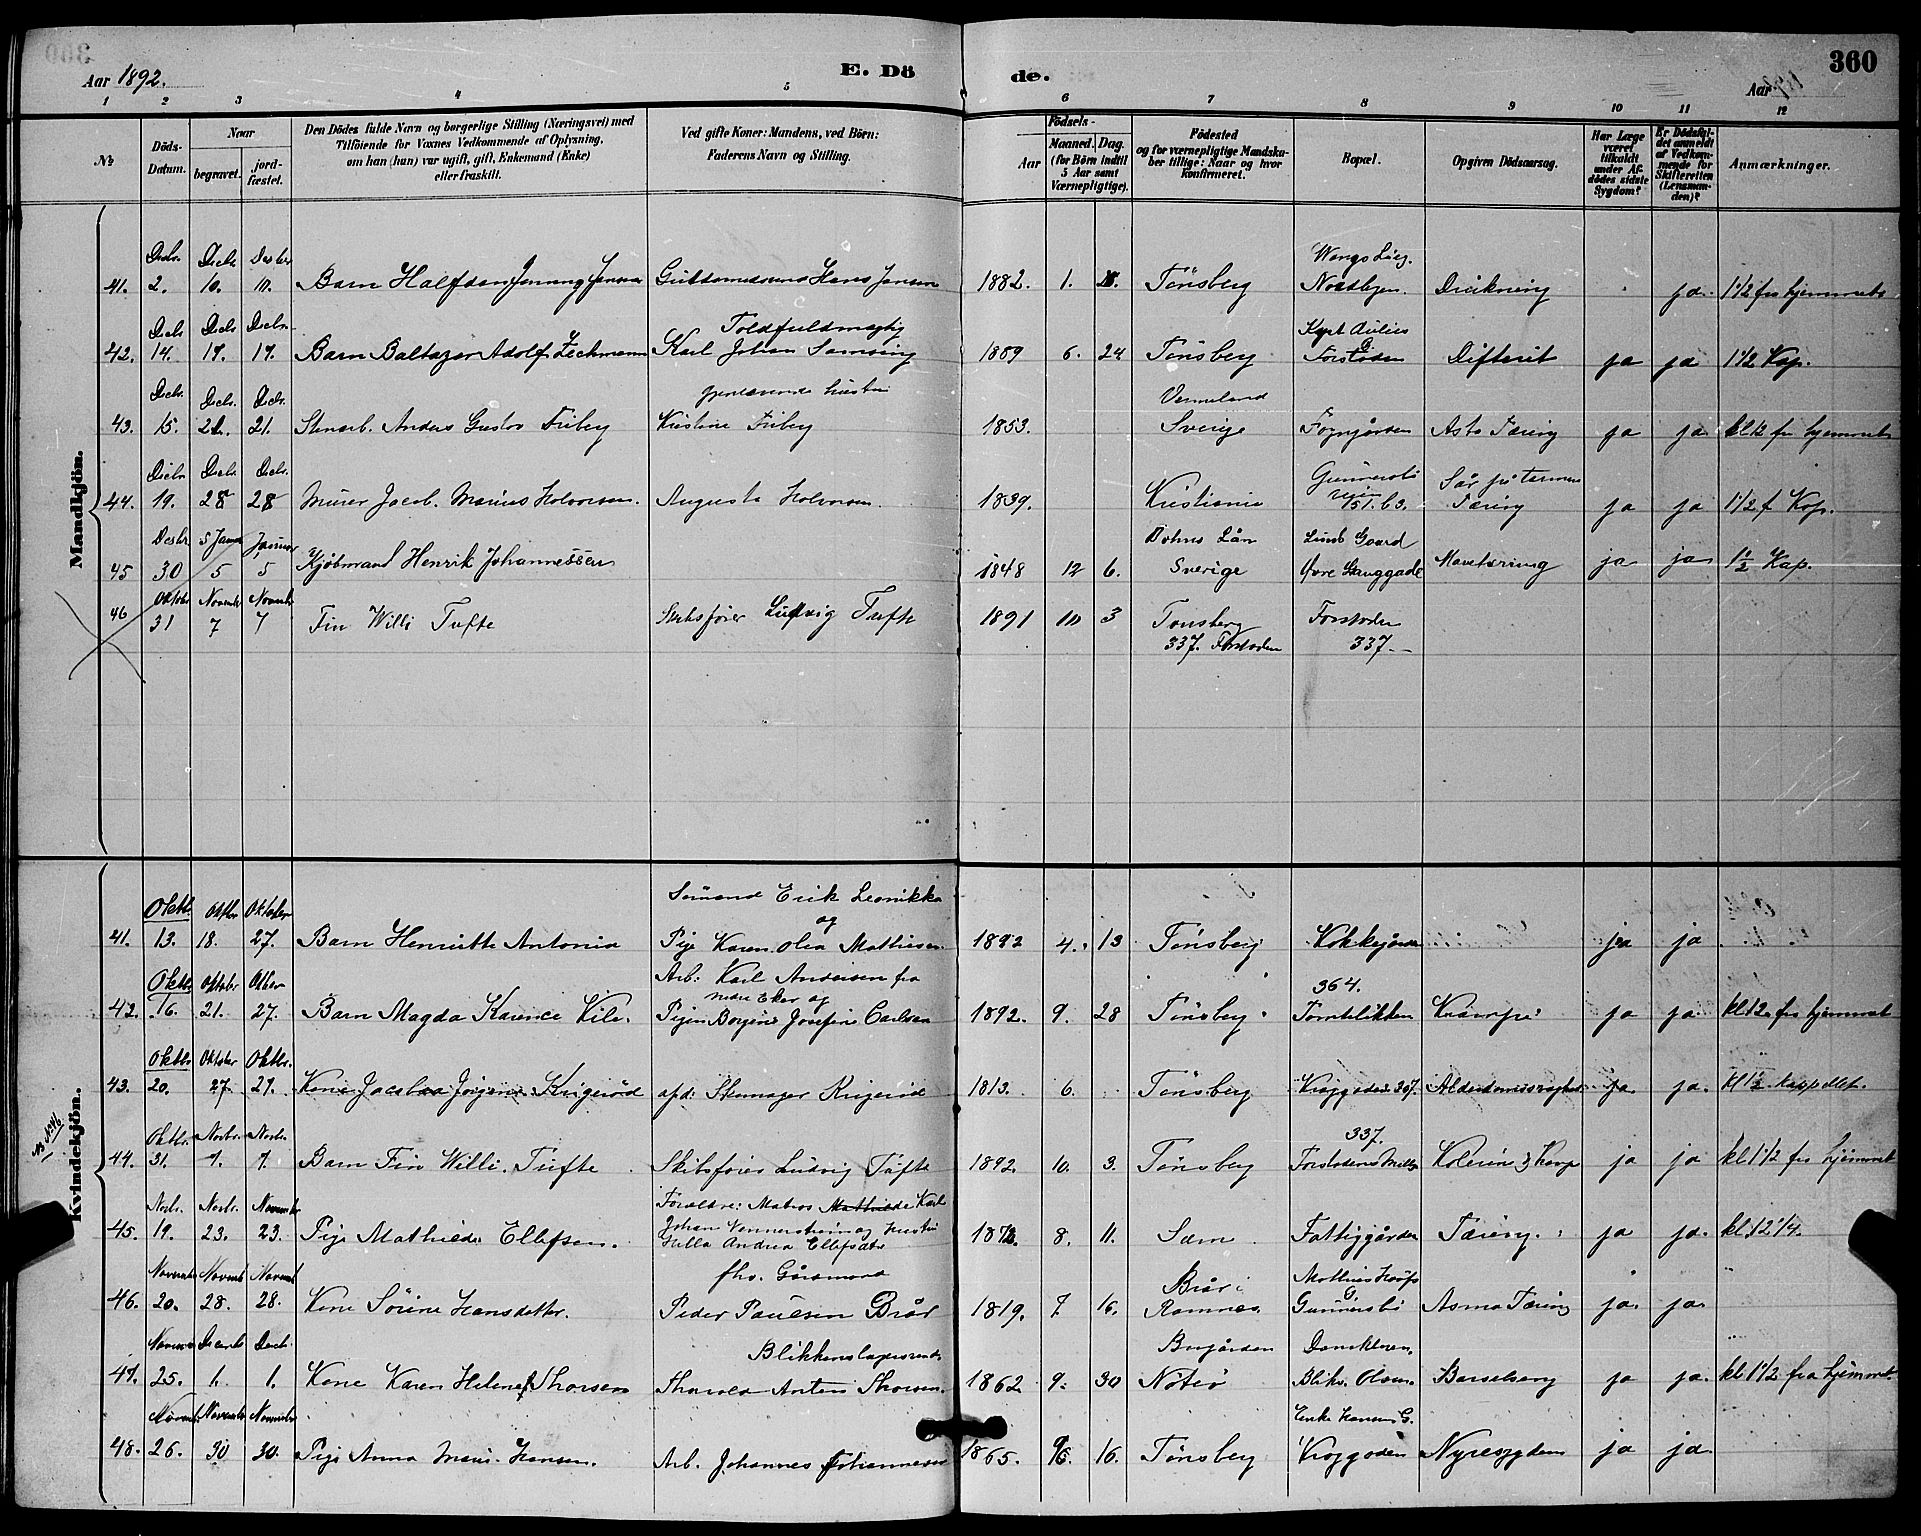 360
Aar 1892.
E. Dö
de.
Aar
1 2 3 4 5 6 7 8 9 10 11 12
No
Döds-
Datum.
Naar
begravet.
jord-
fæstet.
Den Dödes fulde Navn og borgerlige Stilling (Næringsvei) med
Tilföiende for Voxnes Vedkommende af Oplysning,
om han (hun) var ugift, gift, Enkemand (Enke)
eller fraskilt.
Ved gifte Koner: Mandens, ved Börn:
Faderens Navn og Stilling.
Födsels-
Aar
Maaned.
Dag.
(for Börn indtil
5 Aar samt
Værnepligtige).
Födested
og for værnepligtige Mandska-
ber tillige: Naar og hvor
konfirmeret.
Bopæl.
Opgiven Dödsaarsag.
Har Læge
været
tilkaldt
under Af-
dödes sidste
Sygdom?
Er Dödsfal-
det anmeldt
af Vedkom-
mende for
Skifteretten
(Lensman-
den)?
Anmærkninger.
Mandkjön.
41. Decbr. 2. Decbr 10. Decbr 10. Barn Halfdan Henning Jensen Guldsmedsvend Hans Jensen 1882. 1. Tönsberg Nordbyen. Drukning ja. 1 1/2 fra hjemmet
42. Decbr 14. Decbr 17. Decbr. 17. Barn Baltazar Adolf Zechmann Toldfuldmægtig
Karl Johan Samsing 1889 6. 24 Tönsberg Forstaden Difterit ja ja 1 1/2 Kap.
43. Decbr. 15. Decbr. 21. Decbr. 21. Stenarb. Anders Gustav Friberg gjenlevende hustru
Kristine Friberg 1853. Vermeland
Sverige Asta Tæring ja ja kl 12 fra hjemmet
44. Decbr 19. Decbr. 28 Decbr. 28 Murer Jacob Marius Halvorsen. Augusta Halvorsen. 1839. Kristiania Sår på tarmen
Tæring ja ja 1 1/2 f Kap.
45 Decbr. 30 5 Januar 5 Januar 5 Kjöbmand Henrik Johannessen 1848 12 6. Bohus Län
Sverige Lunds Gaard
Övre Langgade Mavetæring ja ja 1 1/2 Kap.
46 Oktober 31 Novembr 7 Novembr 7 Fin Willi Tufte Skibsförer Ludvig Tufte 1891 10 3 Tönsberg
337. Forstaden Forstaden
337.-
Kvindekjön.
41. Oktbr. 13. Oktbr 18. Oktober 27. Barn Henriette Antonia Sömand Erik Leonikka
og
Pige Karen Olea Mathisen 1892 4. 13 Tönsberg ja ja
42. Oktbr. 16. Oktobr 21. Otber 27. Barn Magda Karence Kile. Arb: Karl Andersen fra
nedre Eker og
Pigen Borgine Josefine Carlsen 1892. 9. 28 Tönsberg 364. Krampe ja ja kl 12 fra hjemmet
43. Oktbr. 20. Oktober 27. Oktbr. 27. Kone Jacobea Jörgine Krigeröd afd: Skomager Krigeröd 1813. 6. Tönsberg Alderdomssvaghed ja ja. kl 1 1/2 kappellet.
Se No 46.
44. Oktbr. 31. Novbr. 7. Novbr. 7. Barn Fin Willi Tufte Skibsförer Ludvig Tufte 1892. 10. 3. Tönsberg 337. ja ja kl 1 1/2 fra hjemmet
45. Novbr. 19. Novbr. 23. November 23. Pige Mathilde Ellefsen. Forældre: Matros Mathilde Karl
Johan Vennerström og hustru
Hella Andrea Ellefsdtr 8. 11. Sem Fattiggården Tæring. ja ja. kl. 12 1/4.
46. November 20. Novembr 28. Novembr 28. Kone Sörine Hansdatter. fhv. Gårdmand
Peder Paulsen Brår 1819. 7. 16. Brår i
Ramnes Gunnersbö Asma Tæring ja ja
47. November 25. Decembr 1. Decbr. 1. Kone Karen Helene Thorsen Blikkenslagersvend
Tharald Anton Thorsen. 1862 9. 30 Nöterö Bliks. Olsen Barselseng ja ja kl 1 1/2 fra hjemmet
48. November 26. November 30 November 30. Pige Anna Marie Hansen. Arb. Johannes Johannesen 1865. 16. Tönsberg Enke Hansens G. Nyresygdom ja ja